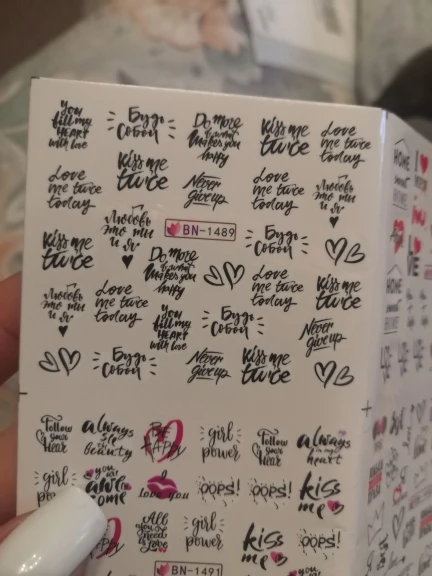 you
fill my
HEART
with love
Будь
Собой
Do more
of what
makes you
happy
Kiss me
twice
Love
me twice
today
Love
me twice
today
Kiss me
twice
Never
give up
Love
me twice
today
Любовь
это ты
и я
Любовь
это ты
и я
BN-1489
Будь
Собой
Kiss me
twice
Do more
of what
makes you
happy
Любовь
это ты
и я
Love
me twice
today
you
fill my
HEART
with love
Будь
Собой
Love
me twice
today
Never
give up
Будь
Собой
Never
give up
Kiss me
twice
Follow
your
Hear
always
so
beauty
BE
HAPPY
girl
power
Follow
your
Hear
always
in my
heart
girl
po
you are
awe
ome
Love you
OOPS!
OOPS!
kiss
me
All
you
need is
Love
girl
power
kiss
me
OOPS!
BN-1491
HOME
I
HOME